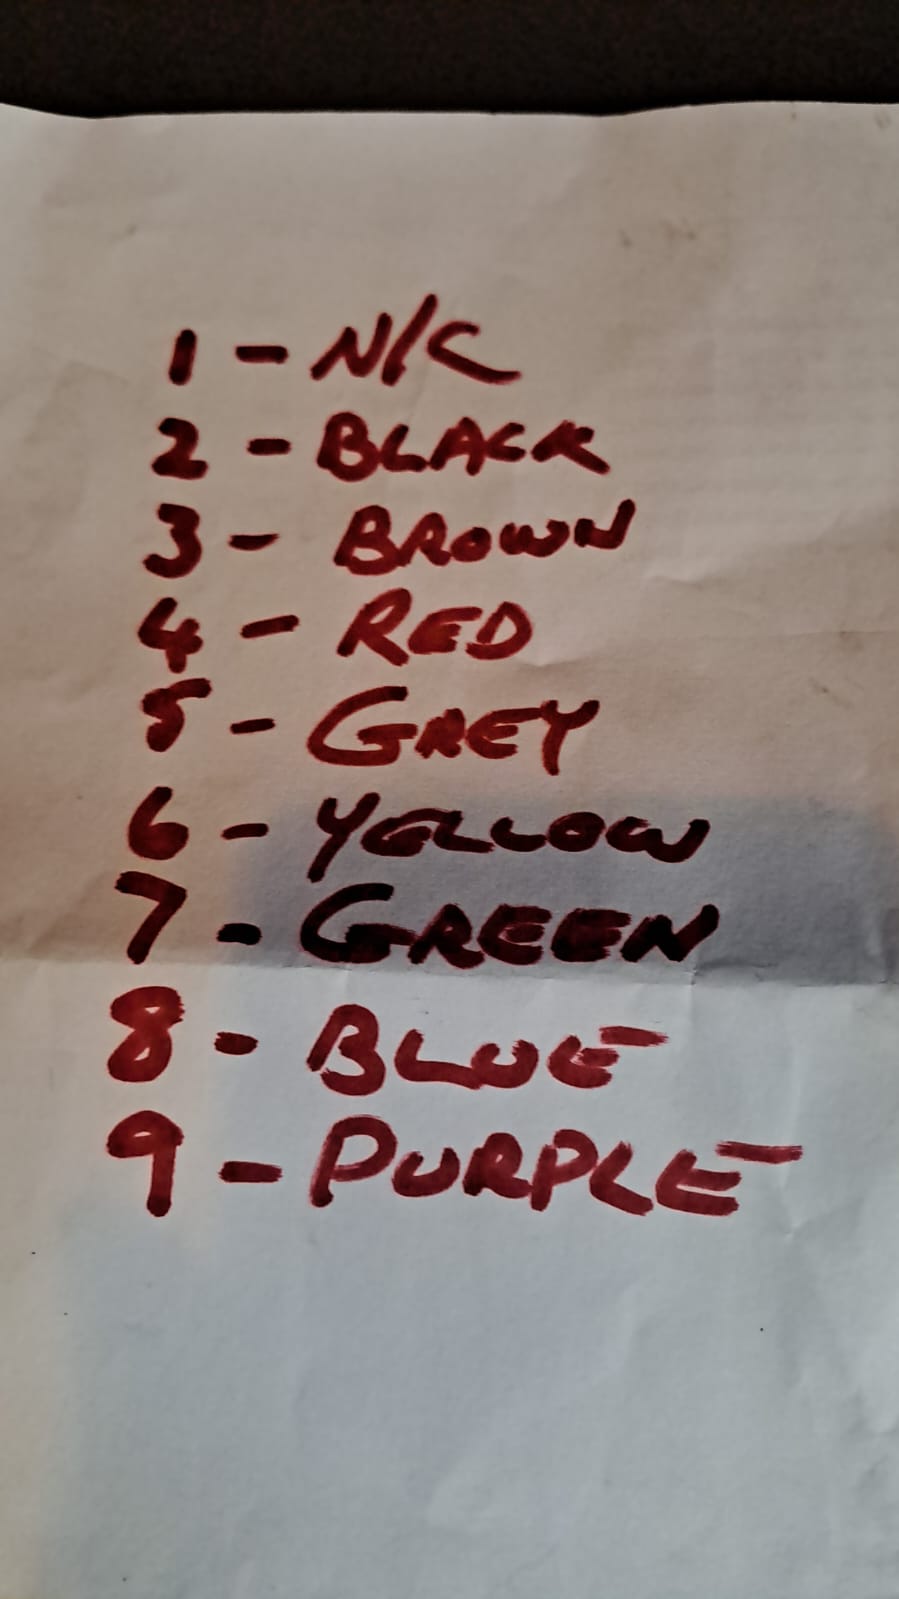 1 - N/C
2 - BLACK
3 - BROWN
4 - RED
5 - GREY
6 - YELLOW
7 - GREEN
8 - BLUE
9 - PURPLE